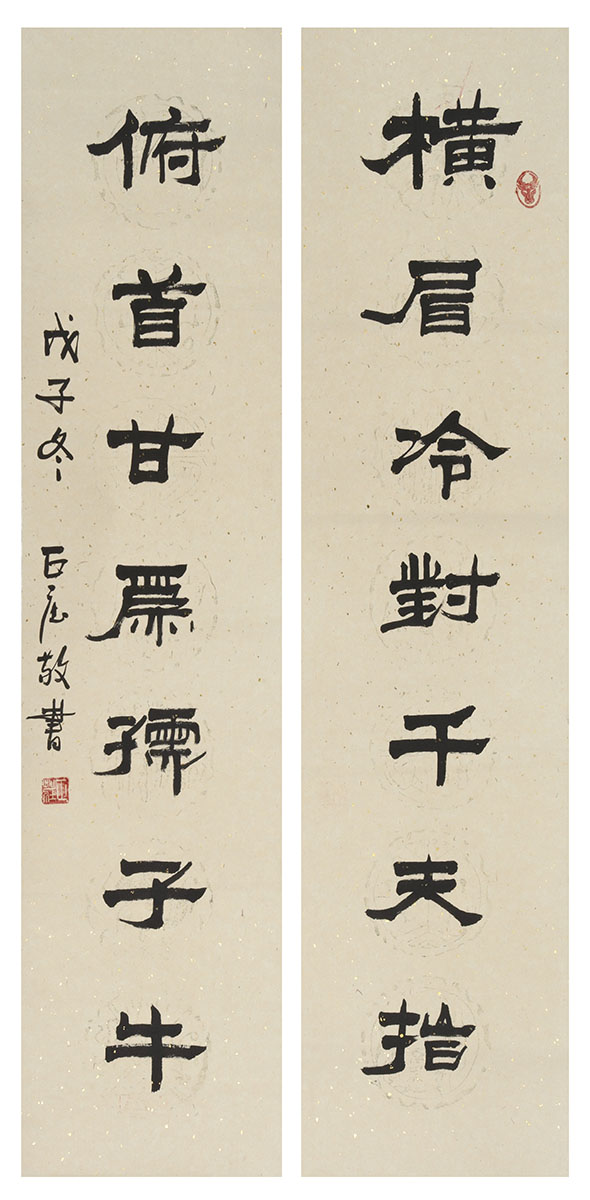 橫眉冷對千夫指
俯首甘爲孺子牛
戊子冬
敬書